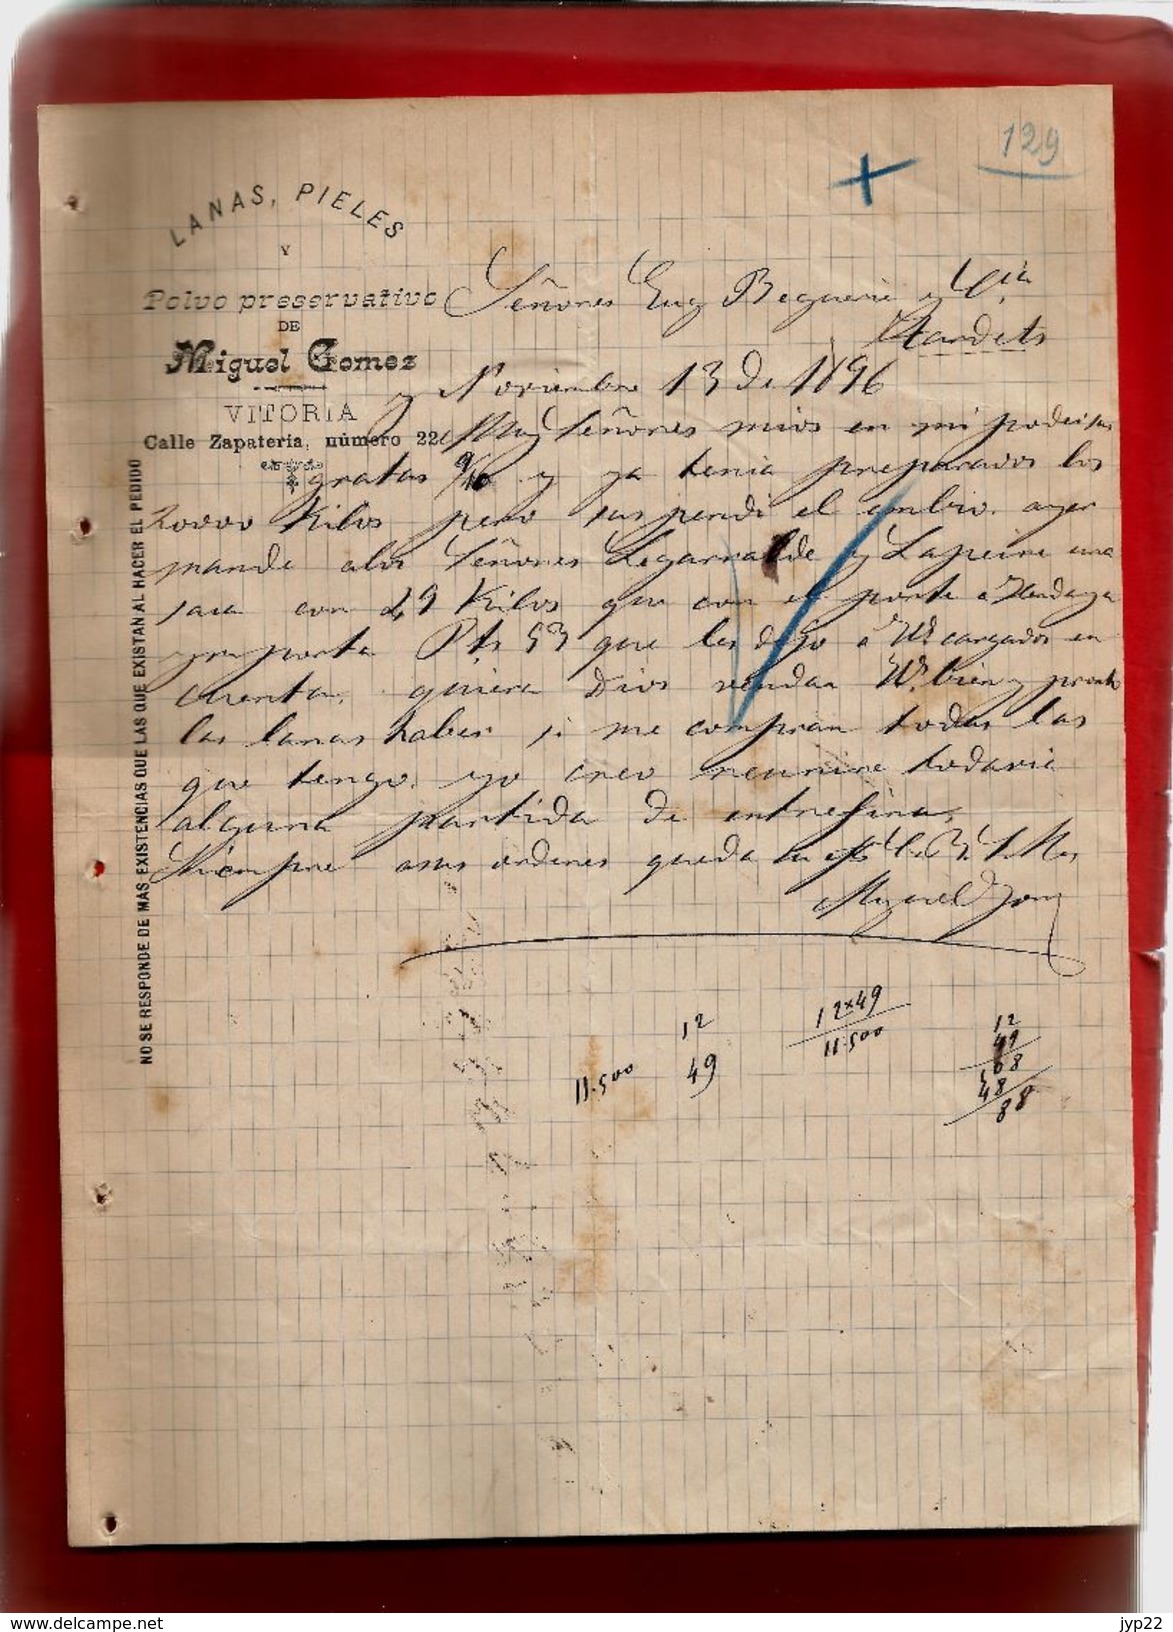 129
LANAS, PIELES
Y
Polvo preservativo
DE
Miguel Gomez
VITORIA
Calle Zapateria, número 22
NO SE RESPONDE DE MAS EXISTENCIAS QUE LAS QUE EXISTAN AL HACER EL PEDIDO
Señores Eug Beguerie y Cia
Tardets
y Noviembre 13 de 1896
Muy Señores mios en mi poder sus
gratas 9/10 y ya tenia preparados los
20000 Kilos pero suspendi el embio. ayer
mande a los Señores Legarralde y Lapeire una
saca con 49 Kilos que con el porte a Hendaya
ymporta Pts 53 que les dejo a Vs. cargados en
cuenta. quiera Dios vendan Vs. bien y pronto
las lanas haber si me compran todas las
que tengo. yo creo reunire todavia
alguna partida de entrefina,
Siempre a sus ordenes queda su
Miguel Gomez
12
49
11.500
12x49
11.500
12
49
108
48
88
delcampe.net
jyp22